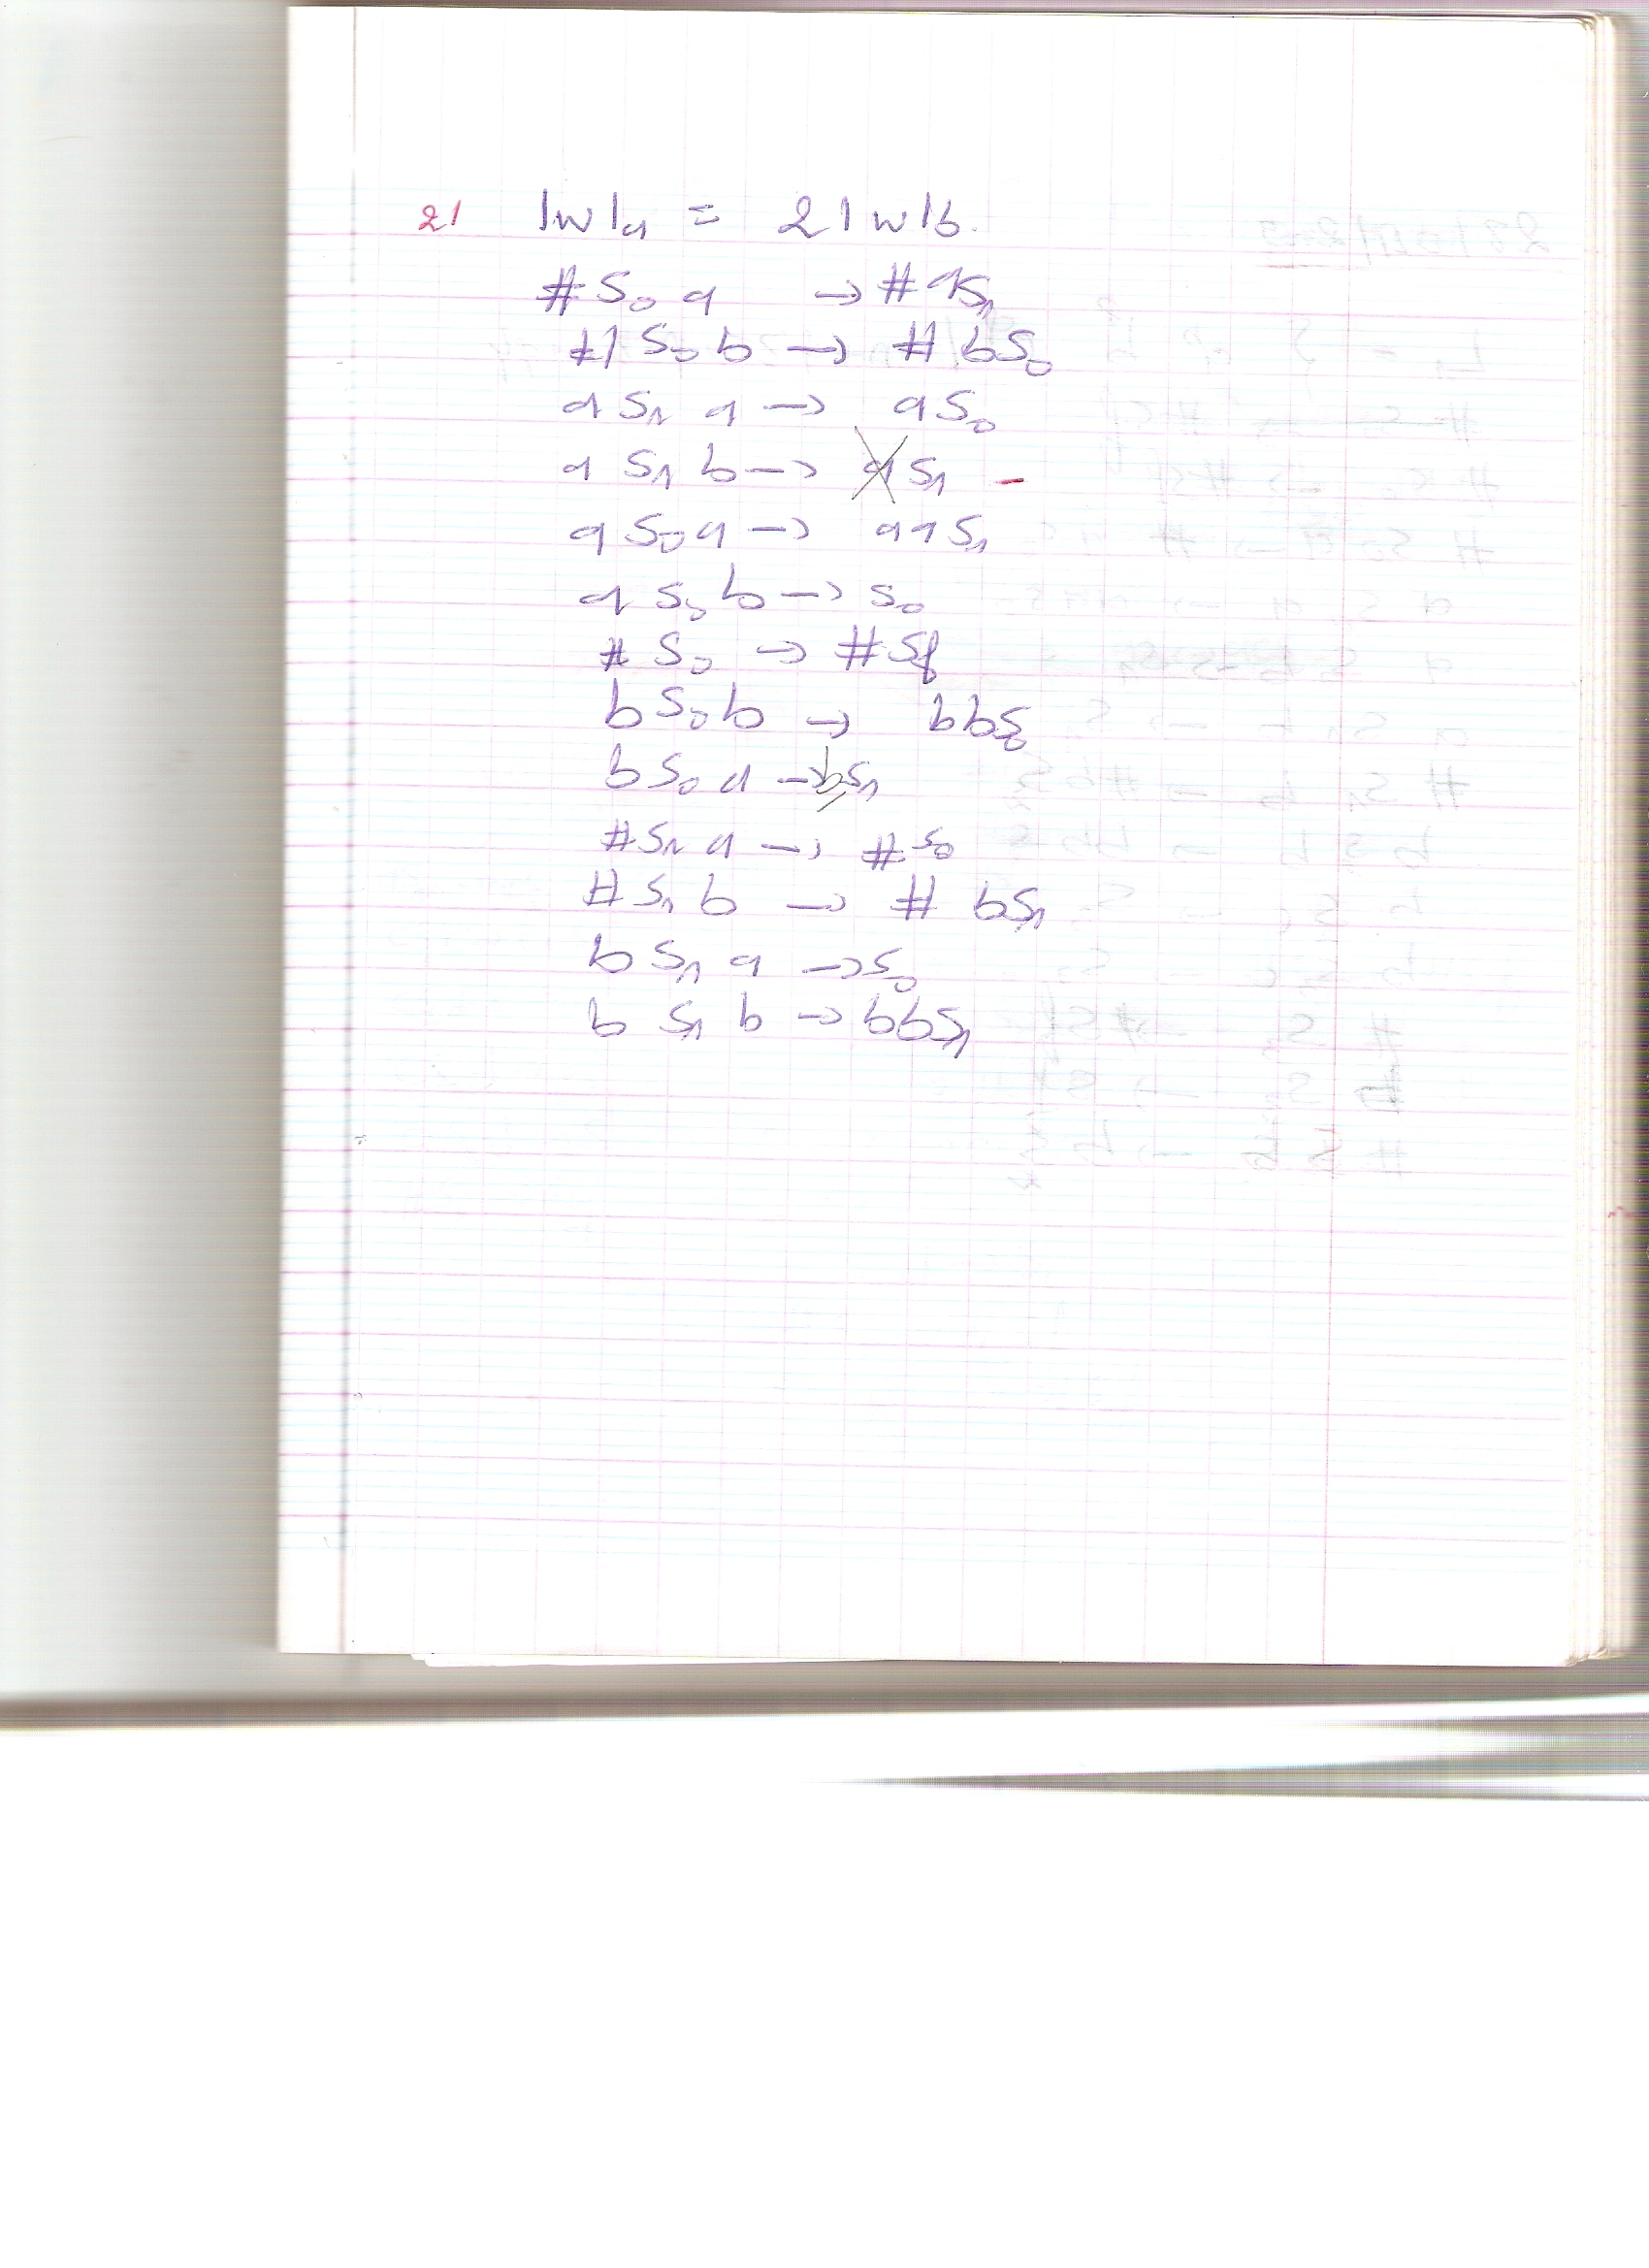 21 |w|a = 2|w|b.
# S0 a → # aS1
# S0 b → # bS0
a S1 a → a S0
a S1 b → a S1 -
a S0 a → a a S1
a S0 b → S0
# S0 → # Sf
b S0 b → b b S0
b S0 a → bS1
# S1 a → # S0
# S1 b → # b S1
b S1 a → S0
b S1 b → b b S1